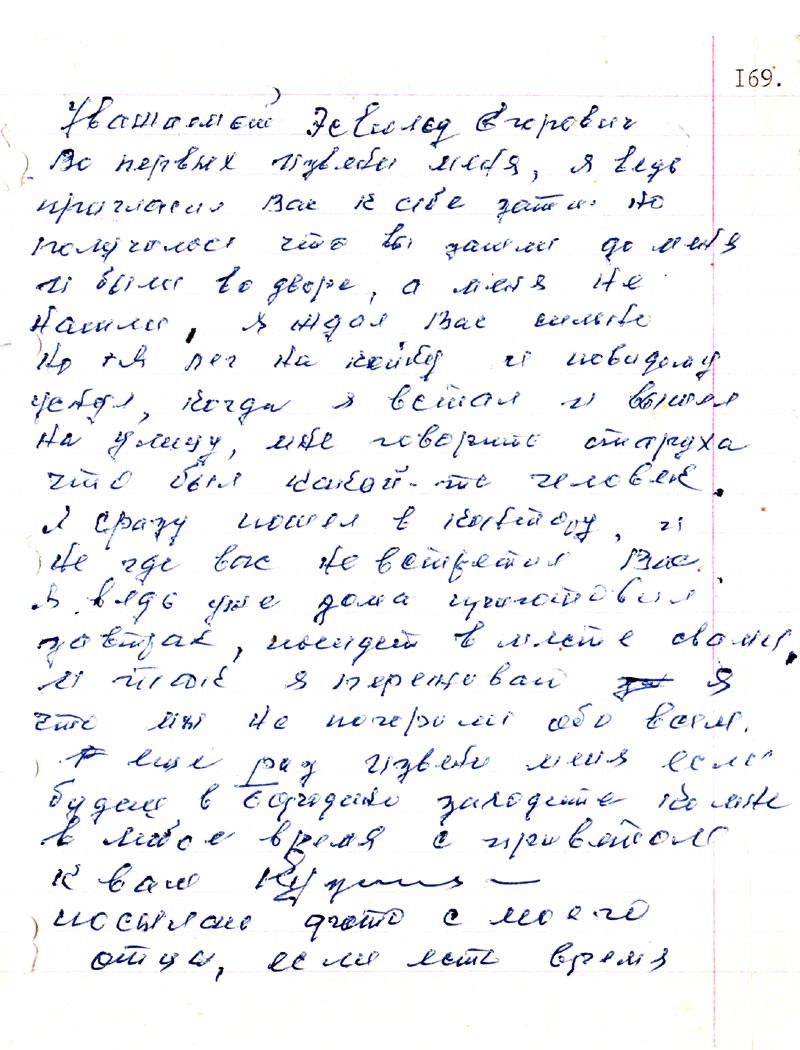 169.
Уважаемый Эсвольд Егорович
Во первых извени меня, я ведь
пригласил Вас к себе зати но
получолось что вы зашли до меня
и были во дворе, а меня не
нашли, я ждал Вас сильно
но лег на койку и повидому
уснул, когда я встал и вышел
на улицу, мне говорить старуха
что был какой-то человек.
Я сразу пошел в контору, и
не где вас не встретил Вас.
Я ведь уже дома приготовил
завтрак, посидет в месте свами,
и так я переживал я
что мы не погорили обо всем.
еще раз извени меня если
будеш в Бородино заходите ко мне
в любое время с приветом
к вам
посылаю фото с моего
отца, если есть время